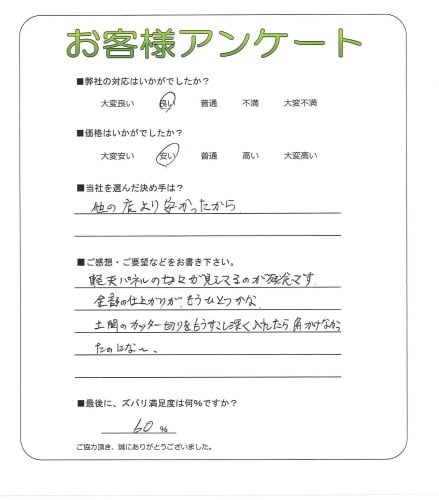 お客様アンケート
■弊社の対応はいかがでしたか?
大変良い 良い 普通 不満 大変不満
■価格はいかがでしたか?
大変安い 安い 普通 高い 大変高い
■当社を選んだ決め手は?
他の店より安かったから
■ご感想・ご要望などをお書き下さい。
軽天パネルの が見えてるのが残念です.
全部の仕上がりが、もうひとつかな.
土間のカッター切りをもうすこし深く入れたら、角かけなかっ
たのにな〜、
■最後に、ズバリ満足度は何%ですか?
60 %
ご協力頂き、誠にありがとうございました。